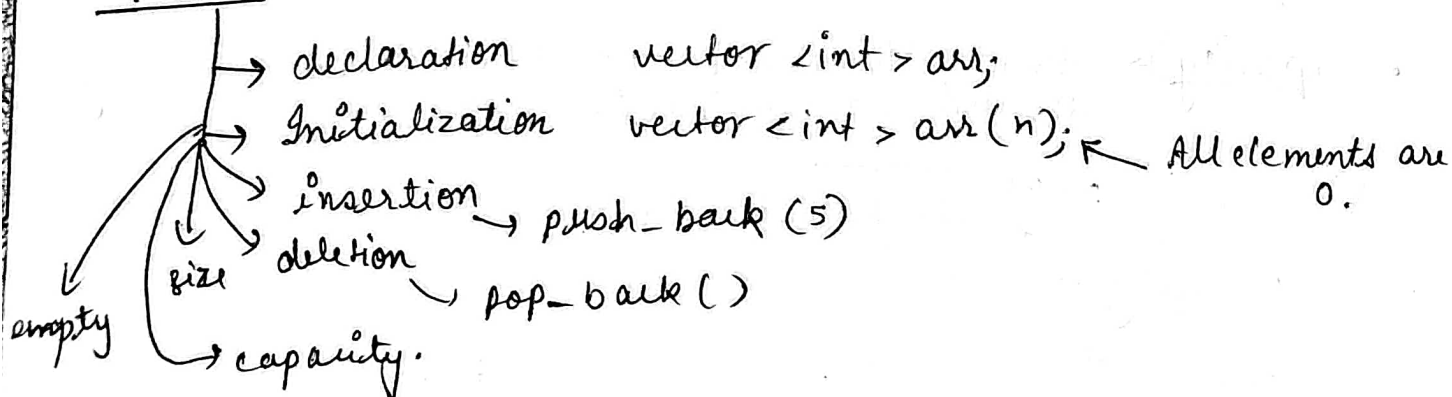 declaration vector <int> arr;
Initialization vector <int> arr(n); All elements are
0.
insertion push_back (5)
size deletion pop_back ()
empty
capacity.